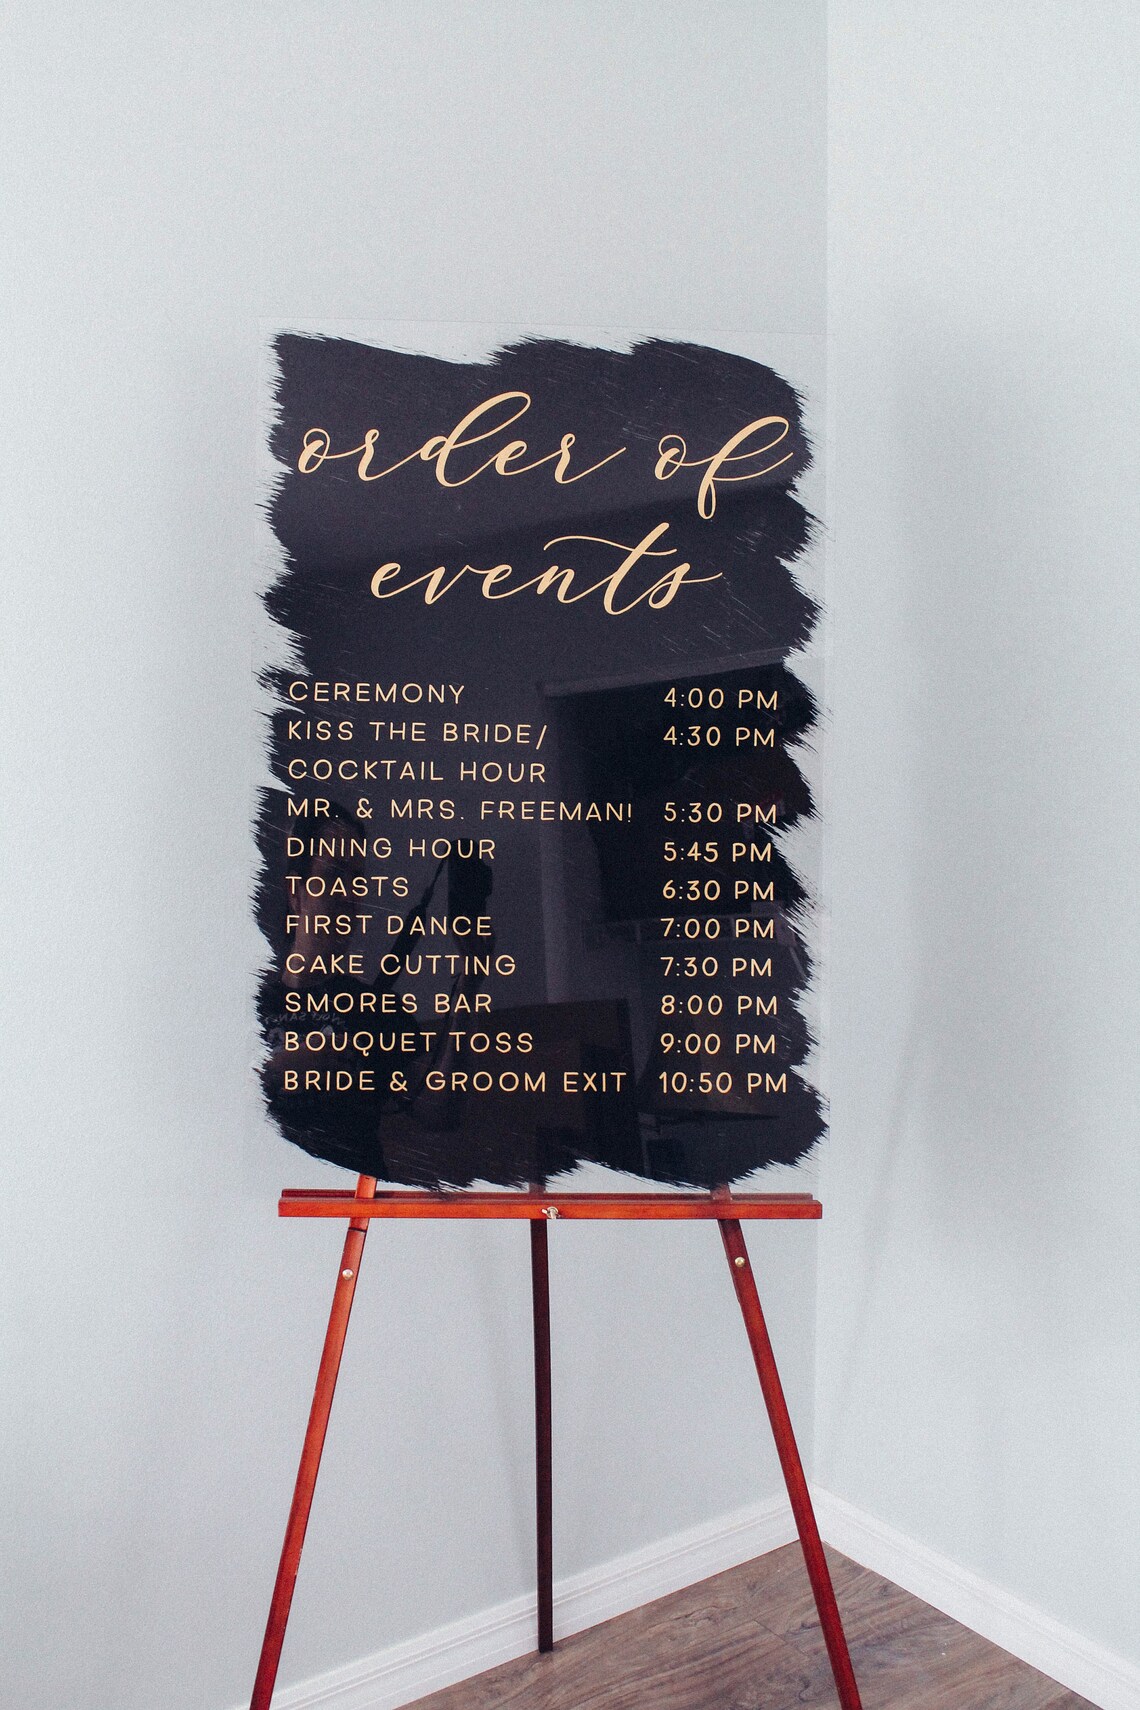 order of
events
CEREMONY 4:00 PM
KISS THE BRIDE/ 4:30 PM
COCKTAIL HOUR
MR. & MRS. FREEMAN! 5:30 PM
DINING HOUR 5:45 PM
TOASTS 6:30 PM
FIRST DANCE 7:00 PM
CAKE CUTTING 7:30 PM
SMORES BAR 8:00 PM
BOUQUET TOSS 9:00 PM
BRIDE & GROOM EXIT 10:50 PM